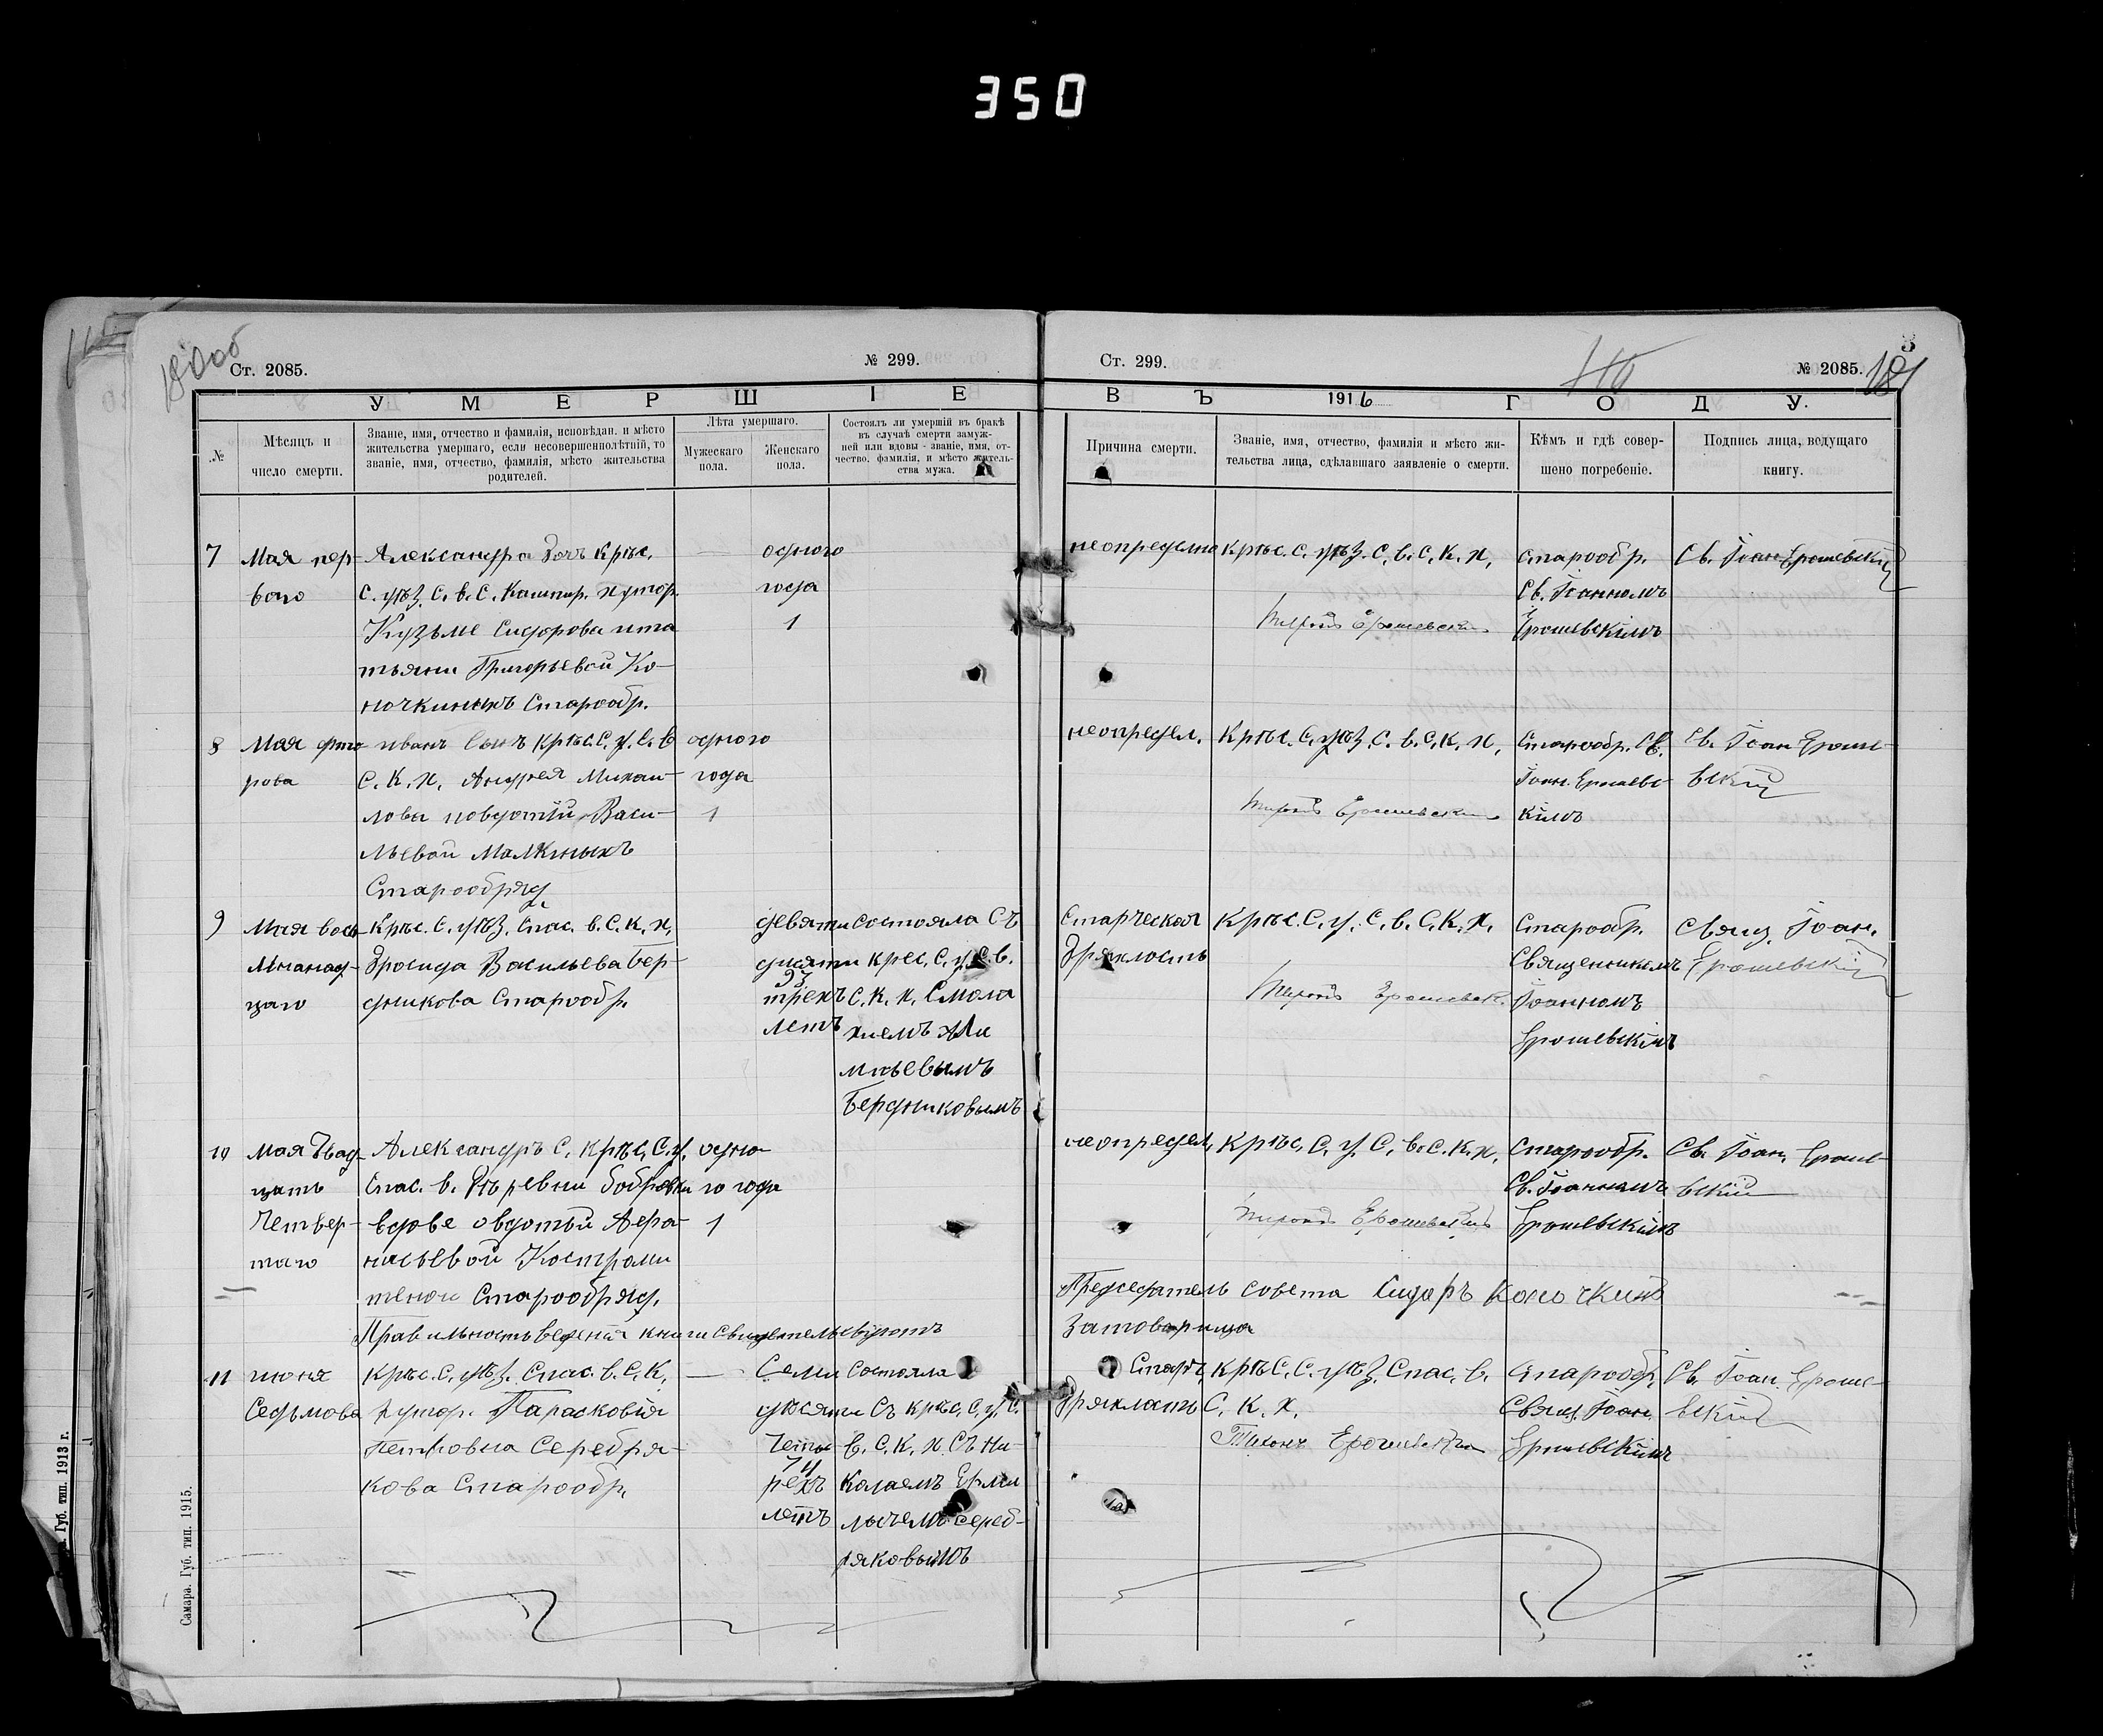 350
180об
Ст. 2085.
№ 299.
Ст. 299.
№ 2085.
3
181
УМЕРШІЕ
ВЪ 1916 ГОДУ.
№
Мѣсяцъ и
число смерти.
Званіе, имя, отчество и фамилія, исповѣдан. и мѣсто
жительства умершаго, если несовершеннолѣтній, то
званіе, имя, отчество, фамилія, мѣсто жительства
родителей.
Лѣта умершаго.
Мужескаго
пола.
Женскаго
пола.
Состоялъ ли умершій въ бракѣ
въ случаѣ смерти замуж-
ней или вдовы - званіе, имя, от-
чество, фамилія, и мѣсто житель-
ства мужа.
Причина смерти.
Званіе, имя, отчество, фамилія и мѣсто жи-
тельства лица, сдѣлавшаго заявленіе о смерти.
Кѣмъ и гдѣ совер-
шено погребеніе.
Подпись лица, ведущаго
книгу.
7
Мая пер-
ваго
Александра дочъ Крѣс.
С. уѣз. С. в. С. Кашпир. хутор.
Кузьме Сидорова ита
тьяни Григорьевой Ко-
ночкиныхъ Старообр.
одного
года
1
неопределно
Крѣс. С. уѣз. С. в. С. К. Х.
Старообр.
Св. Іоанномъ
Ерошевскімъ
Св. Іоан Ерошевскій
8
Мая фто-
рова
иванъ Сынъ крѣс. С. у. С. в
С. К. Х. Андрея Михаи-
лова иовдотіи Васи-
льевой Малкиныхъ
Старообряд.
одного
года
1
неопредел.
Крѣс. С. уѣз. С. в. С. К. Х.
Старообр. Св.
Іоан. Ерошевс-
кімъ
Св. Іоан Ероше-
вскій
9
Мая вось-
мнанад-
цаго
Крѣс. С. уѣз. Спас. в. С. К. Х.
Дросида Васильева Бер-
дникова Старообр.
девяти
дисяти
93
трехъ
летъ
состояла Съ
крес. С. у. С. в.
С. К. Х.
Бердниковымъ
Старческая
Дряхлость
Крѣс. С. у. С. в. С. К. Х.
Старообр.
Священникомъ
Іоанномъ
Ерошевскімъ
Свящ. Іоан.
Ерошевскій
10
мая двад-
цать
Четвер-
таго
Александръ С. крѣс. С. у.
Спас. в. Дѣревни бобровки
вдове овдотьи Афа-
насьевой Костроми
теной Старообряд.
одно-
го года
1
неопредел.
Крѣс. С. у. С. в. С. К. Х.
Старообр.
Св. Іоанномъ
Ерошевскімъ
Св. Іоан. Ероше-
вскій
Правильность ведения книги Свидетельсвуютъ
Председатель совета Сидаръ Коночкинъ
Затоварища
11
июня
Седьмова
Крѣс. С. уѣз. Спас. в. С. К.
хутор. Парасковія
Петровна Серебря-
кова Старообр.
Семи
дисяти
Четы
74
рехъ
летъ
Состояла
Съ крѣс. С. у. С.
в. С. К. Х Съ Ни-
колаемъ Ерми
лычемъ Сереб-
ряковымъ
Старч.
Дряхлать
крѣс. С. уѣз. Спас. в.
С. К. Х.
Тихонъ Ерошевский
Старообр.
Свящ. Іоан.
Ерошевскімъ
Св. Іоан. Ероше-
вскій
Самара. Губ. тип. 1915.
Губ. тип. 1913 г.